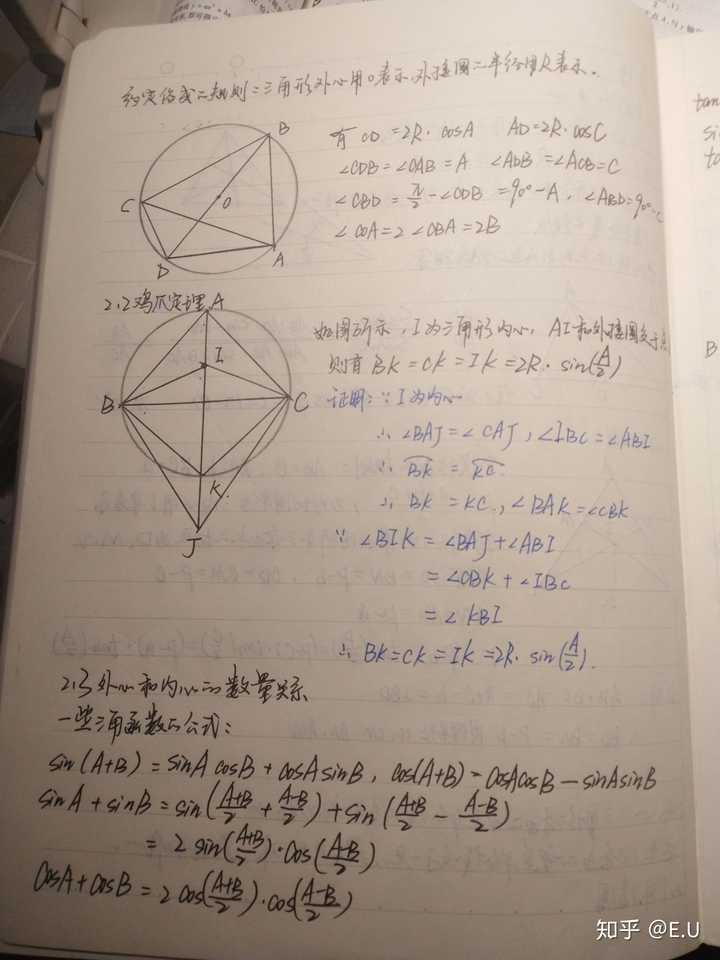 约定俗成的规则：三角形外心用O表示，外接圆的半径用R表示．
有 CD=2R·cosA AD=2R·cosC
∠CDB=∠CAB=A ∠ADB=∠ACB=C
∠CBD=π/2-∠CDB=90°-A，∠ABD=90°-C
∠COA=2∠CBA=2B
B
C
O
D
A
2.2鸡爪定理
A
I
B
C
K
J
如图所示，I为三角形内心，AI和外接圆交于点
则有 BK=CK=IK=2R·sin(A/2)
证明：∵ I为内心
∴ ∠BAJ=∠CAJ，∠IBC=∠ABI
∵ BK=KC
∴ BK=KC，∠BAK=∠CBK
∵ ∠BIK=∠BAJ+∠ABI
=∠CBK+∠IBC
=∠KBI
∴ BK=CK=IK=2R·sin(A/2).
2.3外心和内心的数量关系
一些三角函数的公式：
sin(A+B)=sinAcosB+cosAsinB，cos(A+B)=cosAcosB-sinAsinB
sinA+sinB=sin(A+B/2+A-B/2)+sin(A+B/2-A-B/2)
=2sin(A+B/2)·cos(A-B/2)
cosA+cosB=2cos(A+B/2)·cos(A-B/2)
tan
B
知乎 @E.U